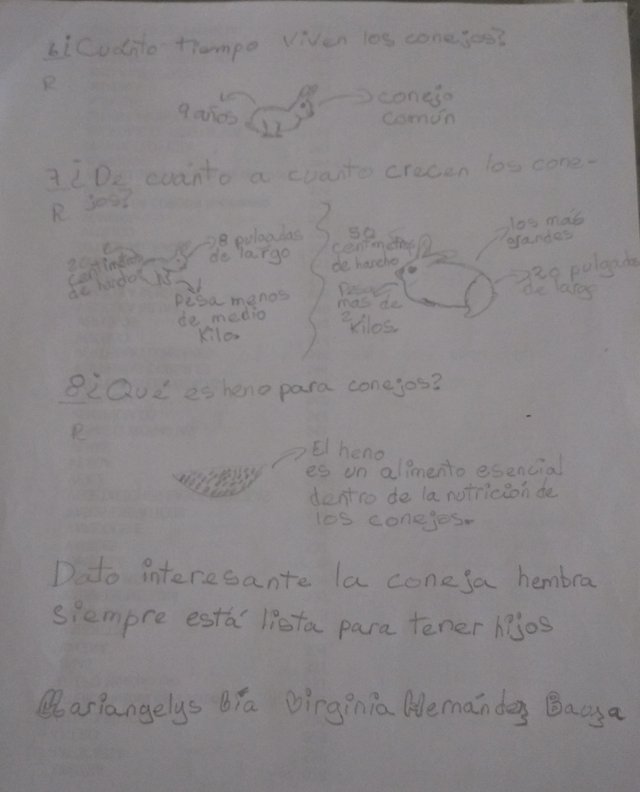 6¿Cuánto tiempo viven los conejos?
R
9 años
conejo
común
7¿De cuánto a cuánto crecen los cone-
jos?
R
20
centimetros
de hancho
8 pulgadas
de largo
Pesa menos
de medio
Kilo.
50
centimetros
de hancho
Pesa
mas de
2
Kilos.
los más
grandes
20 pulgadas
de largo
8¿Qué es heno para conejos?
R
El heno
es un alimento esencial
dentro de la nutrición de
los conejos.
Dato interesante la coneja hembra
siempre está lista para tener hijos
Mariangelys Lía Virginia Hernández Bauza